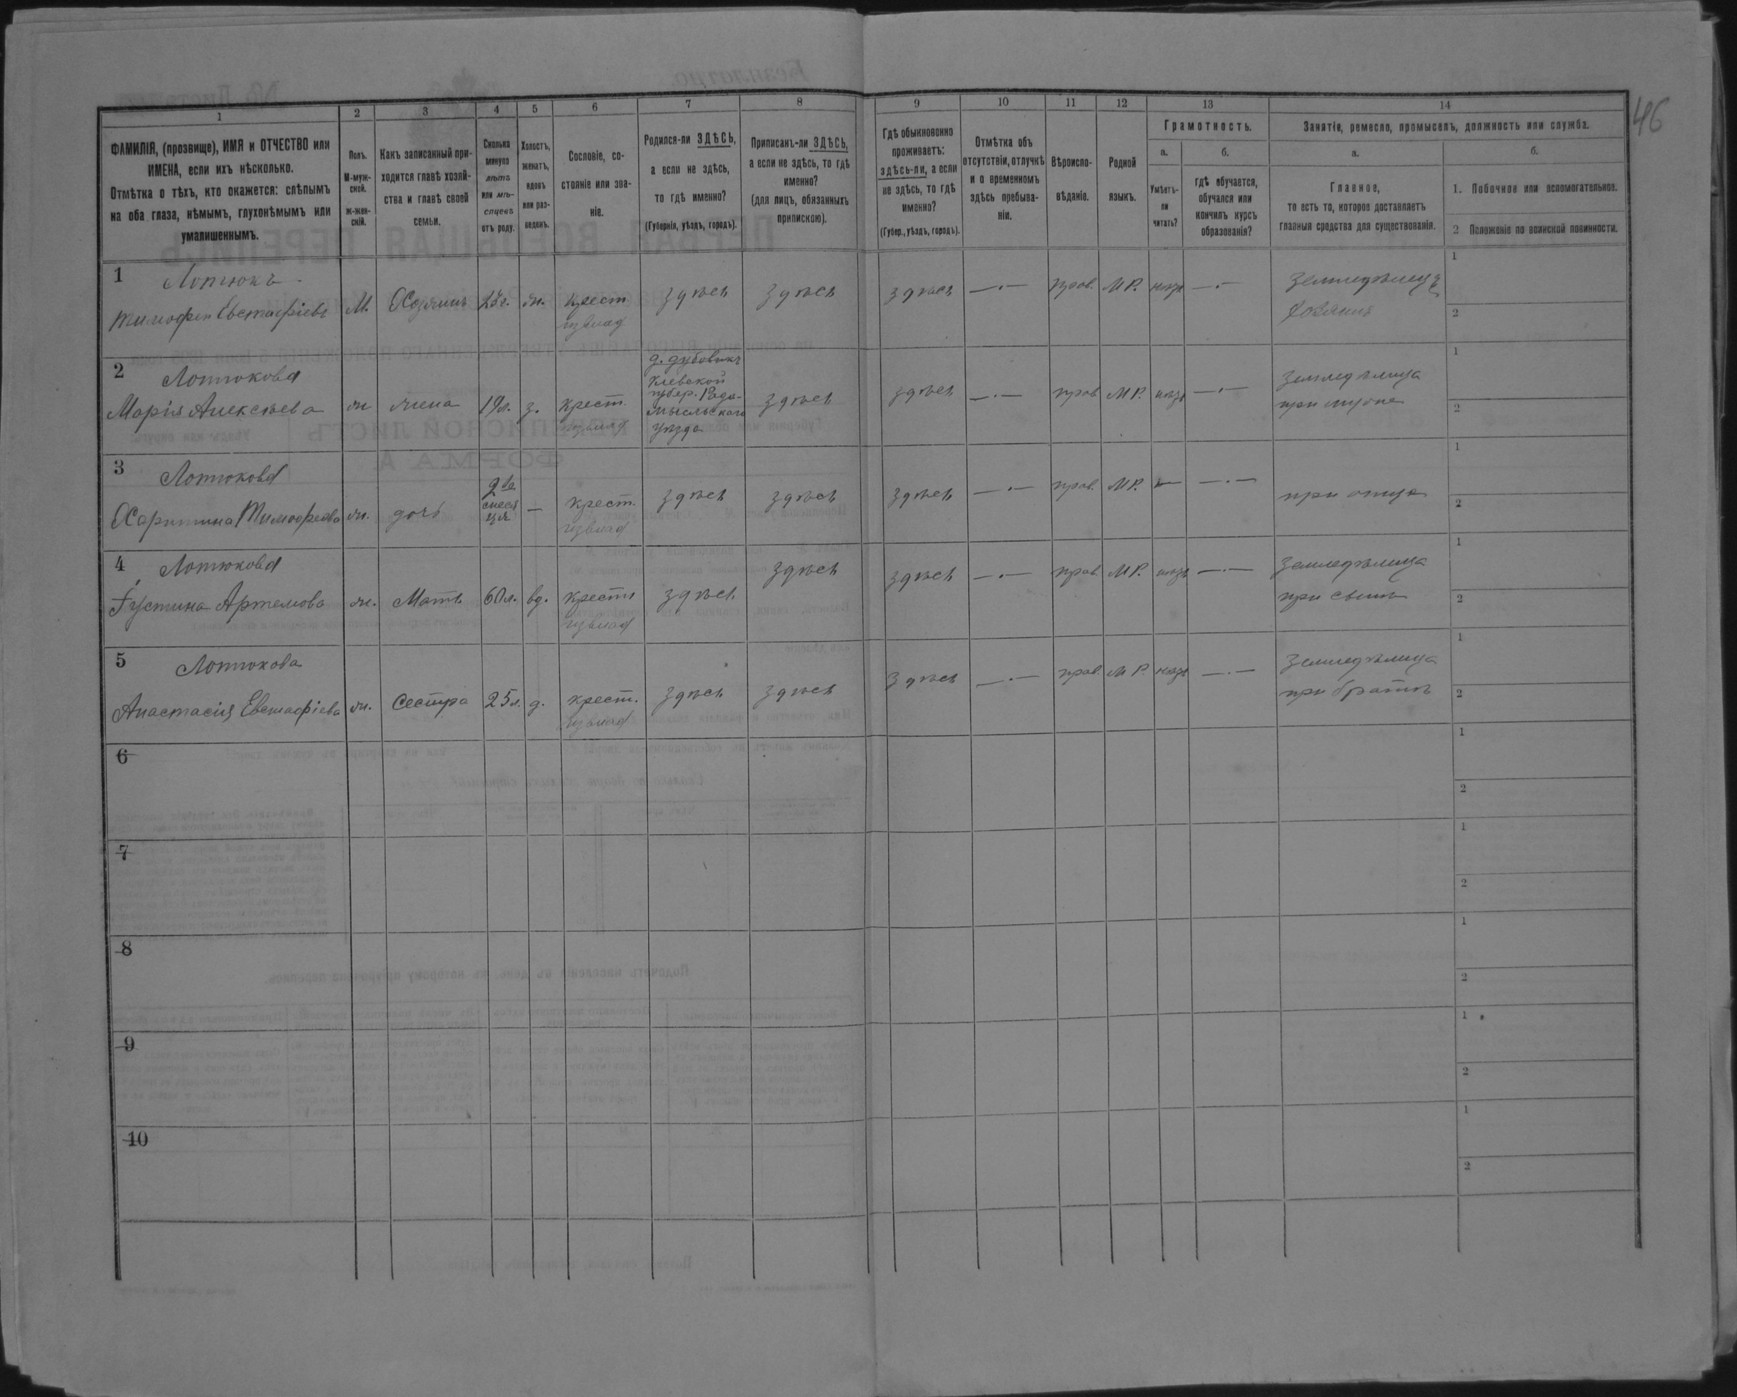 46
1 2 3 4 5 6 7 8 9 10 11 12 13 14
ФАМИЛІЯ, (прозвище), ИМЯ и ОТЧЕСТВО или
ИМЕНА, если ихъ нѣсколько.
Отмѣтка о тѣхъ, кто окажется: слѣпымъ
на оба глаза, нѣмымъ, глухонѣмымъ или
умалишеннымъ.
Полъ.
М-муж-
ской.
Ж-жен-
скій.
Какъ записанный при-
ходится главѣ хозяй-
ства и главѣ своей
семьи.
Сколько
минуло
лѣтъ
или мѣ-
сяцевъ
отъ роду.
Холостъ,
женатъ,
вдовъ
или раз-
веденъ.
Сословіе, со-
стояніе или зва-
ніе.
Родился-ли ЗДѢСЬ,
а если не здѣсь,
то гдѣ именно?
(Губернія, уѣздъ, городъ).
Приписанъ-ли ЗДѢСЬ,
а если не здѣсь, то гдѣ
именно?
(для лицъ, обязанныхъ
припискою).
Гдѣ обыкновенно
проживаетъ:
здѣсь-ли, а если
не здѣсь, то гдѣ
именно?
(Губер., уѣздъ, городъ).
Отмѣтка объ
отсутствіи, отлучкѣ
и о временномъ
здѣсь пребыва-
ніи.
Вѣроиспо-
вѣданіе.
Родной
языкъ.
Грамотность.
а.
Умѣетъ-
ли
читать?
б.
гдѣ обучается,
обучался или
кончилъ курсъ
образованія?
Занятіе, ремесло, промыселъ, должность или служба.
а.
Главное,
то есть то, которое доставляетъ
главныя средства для существованія.
б.
1. Побочное или вспомогательное.
2 Положеніе по воинской повинности.
1
Лотюкъ
Тимофей Евстафіевъ М. Хозяинъ ж. крест. здѣсь здѣсь здѣсь — . — прав. М Р. — . — земледѣлецъ
хозяинъ
1
2
2
Лотюкова
Марія Алексѣева ж жена 19л. з. крест.
д. дубовикъ
Кіевской
губер. Радо-
мысльскаго
уѣзда
здѣсь здѣсь — . — прав М Р. — . — земледѣлица
при мужѣ
1
2
3
Лотюкова
Харитина Тимофеева ж. дочь
две
меся
ца
— крест. здѣсь здѣсь здѣсь — . — прав. М Р. — — . —
при отцѣ
1
2
4
Лотюкова
Іустина Артемова ж. Мать 60л. вд. крест. здѣсь здѣсь здѣсь — . — прав. М Р. — . — земледѣлица
при сынѣ
1
2
5
Лотюкова
Анастасія Евстафіева ж. сестра 25л. д. крест. здѣсь здѣсь здѣсь — . — прав. М Р. — . — земледѣлица
при братѣ
1
2
6
1
2
7
1
2
8
1
2
9
1
2
10
1
2